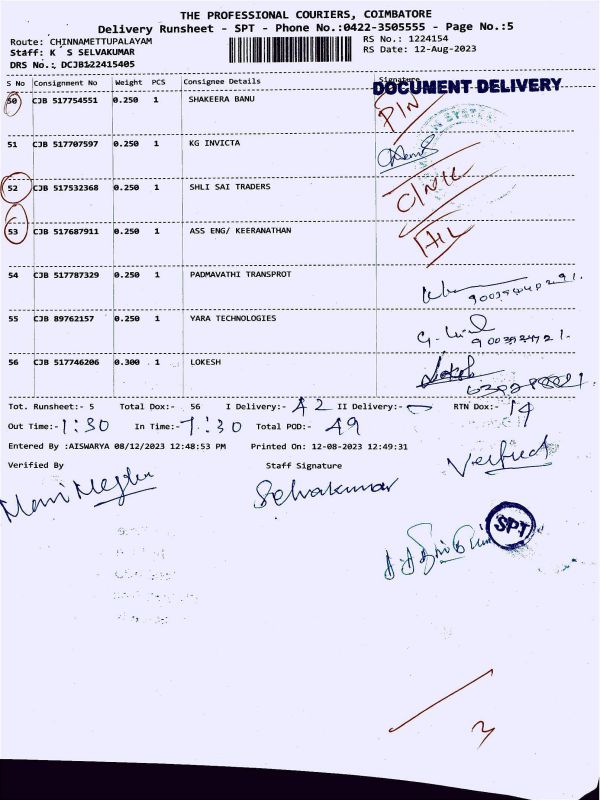 THE PROFESSIONAL COURIERS, COIMBATORE
Delivery Runsheet - SPT - Phone No.:0422-3505555 - Page No.:5
Route: CHINNAMETTUPALAYAM
RS No.: 1224154
Staff: K S SELVAKUMAR
RS Date: 12-Aug-2023
DRS No.: DCJB122415405
S No Consignment No Weight PCS Consignee Details Signature
DOCUMENT DELIVERY
50 CJB 517754551 0.250 1 SHAKEERA BANU PIN
51 CJB 517707597 0.250 1 KG INVICTA
52 CJB 517532368 0.250 1 SHLI SAI TRADERS CINIC
53 CJB 517687911 0.250 1 ASS ENG/ KEERANATHAN
54 CJB 517787329 0.250 1 PADMAVATHI TRANSPROT
55 CJB 89762157 0.250 1 YARA TECHNOLOGIES
56 CJB 517746206 0.300 1 LOKESH Lokesh
Tot. Runsheet:- 5 Total Dox:- 56 I Delivery:- 42 II Delivery:- RTN Dox:- 14
Out Time:- 1:30 In Time:- 7:30 Total POD:- 49
Entered By :AISWARYA 08/12/2023 12:48:53 PM Printed On: 12-08-2023 12:49:31
Verified By Staff Signature Verified
Selvakumar
SPT
3